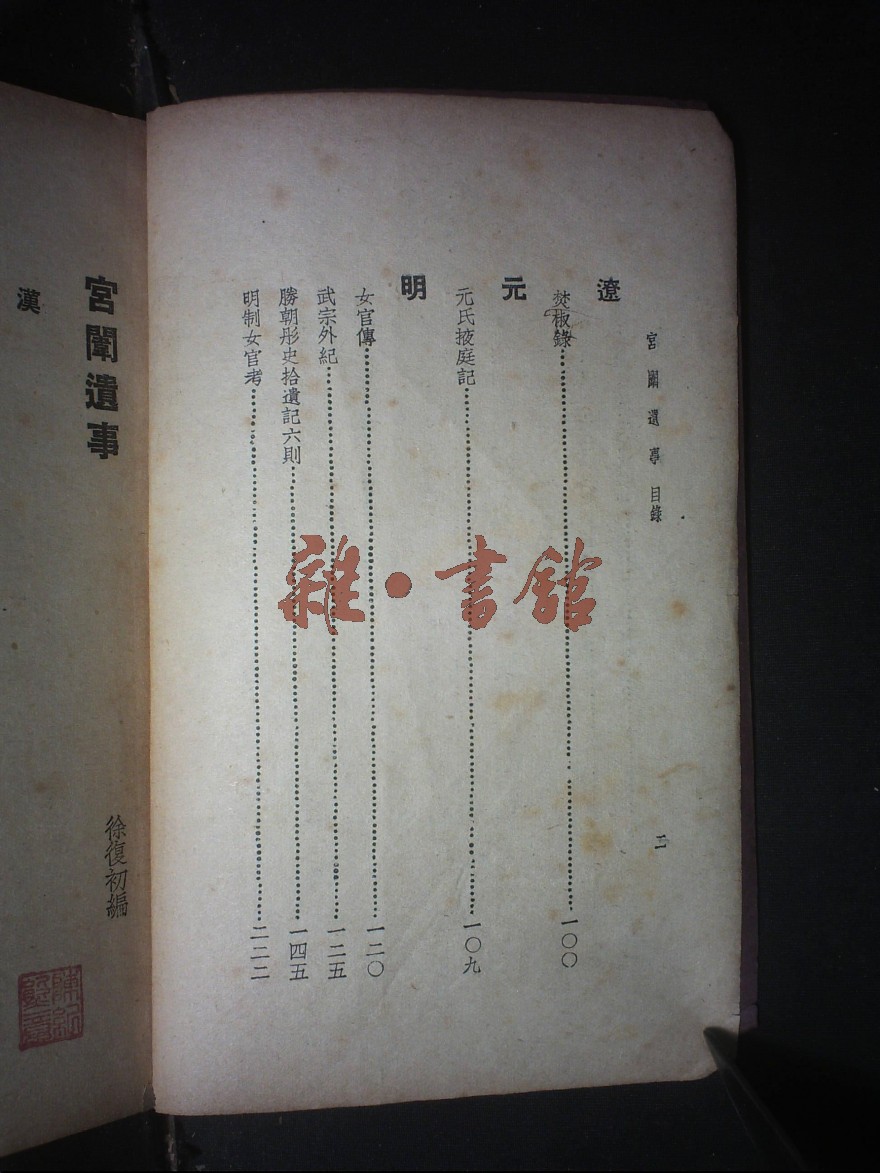 宮闈遺事目錄
二
遼
焚椒錄 一〇〇
元
元氏掖庭記 一〇九
明
女官傳 一二〇
武宗外紀 一二五
勝朝彤史拾遺記六則 一四五
明制女官考 二二二
宮闈遺事
徐復初編
漢
雜·書館